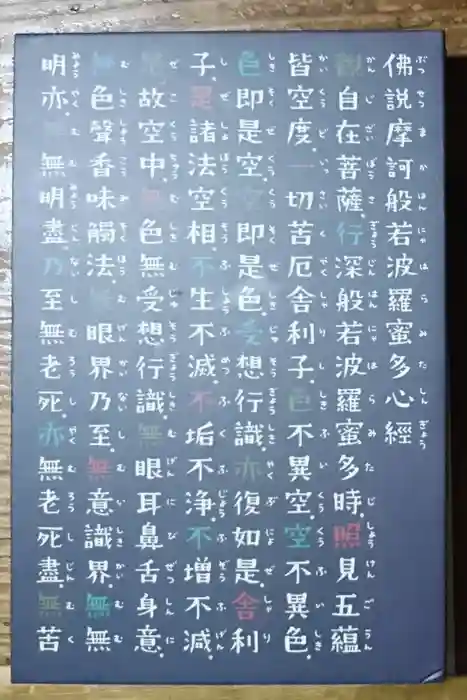 佛説摩訶般若波羅蜜多心經
觀自在菩薩。行深般若波羅蜜多時。照見五蘊
皆空度。一切苦厄舍利子。色不異空。空不異色。
色即是空。空即是色。受想行識。亦復如是。舍利
子。是諸法空相。不生不滅。不垢不浄。不増不減。
是故空中。無色無受想行識。無眼耳鼻舌身意。
無色聲香味觸法。無眼界乃至。無意識界。無無
明亦。無無明盡。乃至無老死。亦無老死盡。無苦